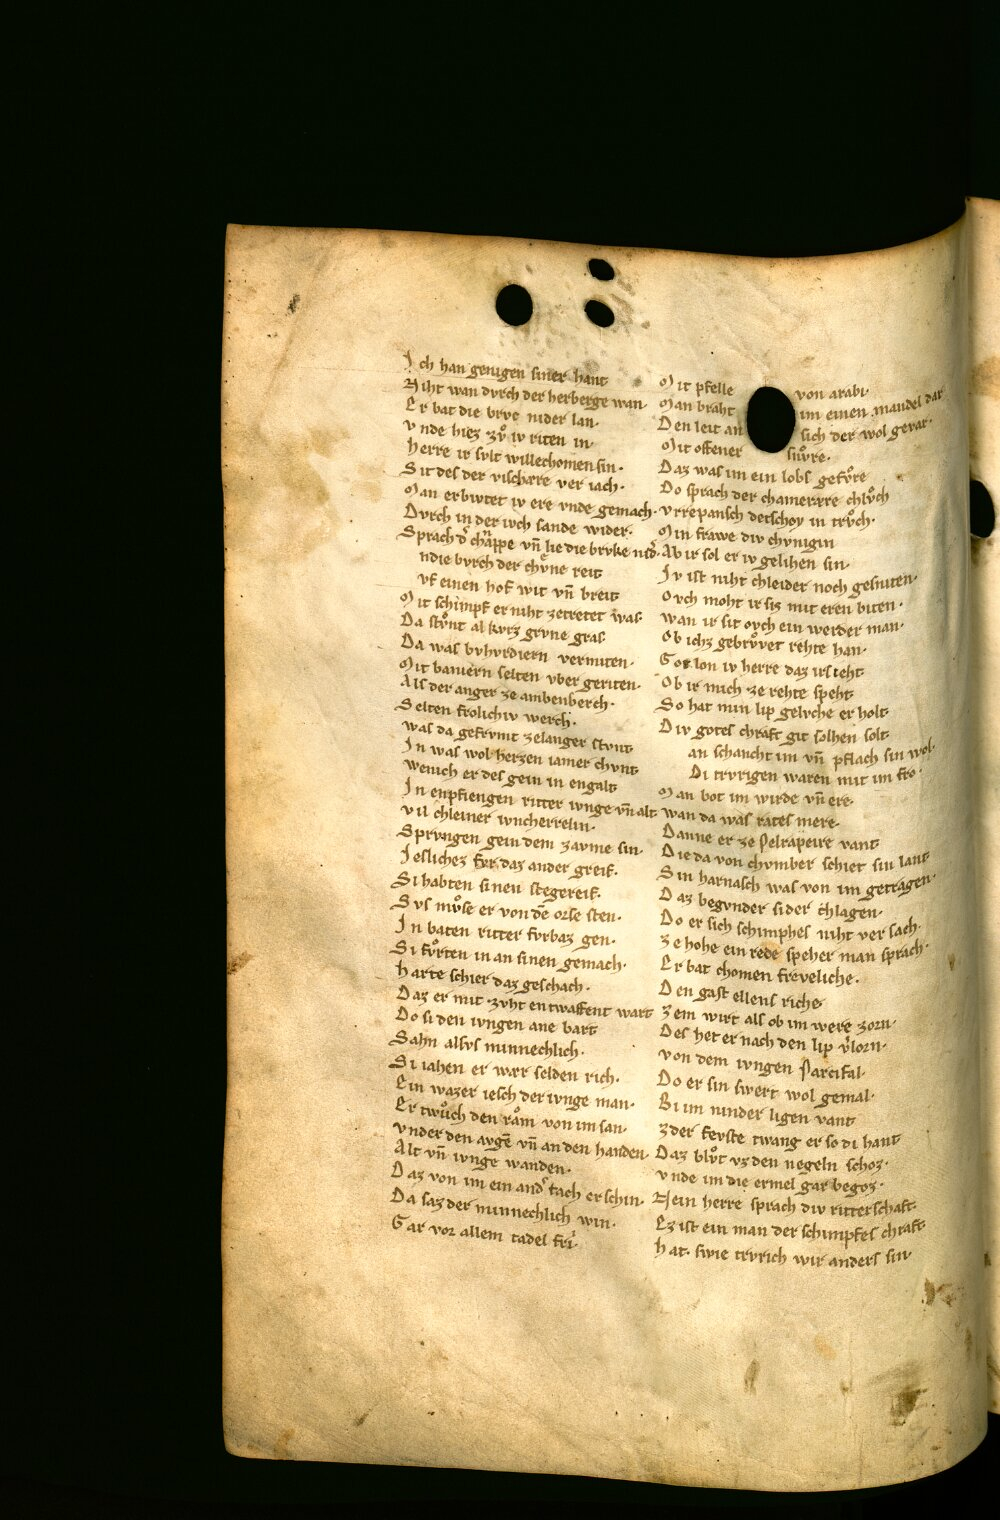 Ich han genigen siner hant
Niht wan dvrch der herberge wan.
Er bat die brve nider lan.
vnde hiez zvͦ iv riten in
herre ir svlt willechomen sin.
Sit des der vischære ver iach.
Man erbivtet iv ere vnde gemach.
Dvrch in der ivch sande wider.
Sprach dˀ chnappe vn̄ lie die brvke nidˀ.
ndie bvrch der chvͤne reit
vf einen hof wit vn̄ breit
Mit schimpf er niht zetretet was.
Da stvͦnt al kvrz grvne gras
Da was bvhvrdiern vermiten.
Mit baniern selten vber geriten.
Als der anger ze ambenberch.
Selten frolichiv werch.
was da gefrvmt zelanger stvnt
In was wol herzen iamer chvnt
wenich er des gein in engalt
In enpfiengen ritter ivnge vn̄ alt
vil chleiner ivncherrelin.
Sprvngen gein dem zavme sin.
Iesliches fvr daz ander greif.
Si habten sinen stegereif.
Svs mvͦse er von dē orse sten.
In baten ritter fvrbaz gen.
Si fvͦrten in an sinen gemach.
harte schier daz geschach.
Daz er mit zvht entwaffent wart
Do si den ivngen ane bart
Sahn alsvs minnechlich.
Si iahen er wær selden rich.
Ein wazer iesch der ivnge man.
Er twvͦch den raͦm von im san.
vnder den avgē vn̄ an den handen.
Alt vn̄ ivnge wanden.
Daz von im ein andˀ tach erschin.
Da saz der minnechlich win.
Gar vor allem tadel fri.
Mit pfelle von arabi.
Man braht im einen mandel dar
Den leit an sich der wol gevar.
Mit offener snvͦre.
Daz was im ein lobs gefvͦre
Do sprach der chamerære chlvͦch
vrrepansch detschoy in trvͦch.
Min frawe div chvnigin
Ab ir sol er iv gelihen sin.
Iv ist niht chleider noch gesniten.
Ovch moht ir siz mit eren biten.
wan ir sit ovch ein werder man.
Ob ichz gebrvͦvet rehte han.
Got lon iv herre daz irs ieht
Ob ir mich ze rehte speht
So hat min lip gelvche er holt
Div gotes chraft git solhen solt
an schancht im vn̄ pflach sin wol.
Di trvrigen waren mit im fro.
Man bot im wirde vn̄ ere.
wan da was rates mere.
Danne er ze Pelrapeire vant
Die da von chvmber schiet sin hant
Sin harnasch was von im getragen.
Daz begvnder sider chlagen.
Do er sich schimphes niht ver sach.
ze hohe ein rede speher man sprach.
Er bat chomen freveliche.
Den gast ellens riche
zem wirt als ob im were zorn.
Des het er nach den lip vˀlorn.
von dem ivngen Parcifal.
Do er sin swert wol gemal.
Bi im ninder ligen vant
zder fevste twang er so di hant
Daz blvͦt vz den negeln schoz.
vnde im die ermel gar begoz.
Nein herre sprach div ritterschaft.
Ez ist ein man der schimpfes chraft
hat. swie trvrich wir anders sin